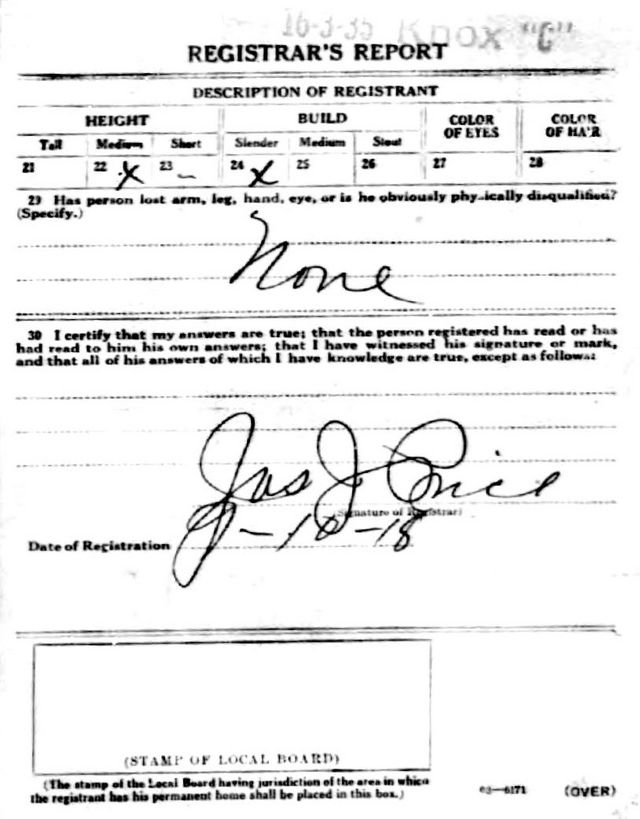 16-3-35 Knox "C"
REGISTRAR'S REPORT
DESCRIPTION OF REGISTRANT
HEIGHT BUILD COLOR OF EYES COLOR OF HAIR
Tall Medium Short Slender Medium Stout
21 22 X 23 24 X 25 26 27 28
29 Has person lost arm, leg, hand, eye, or is he obviously physically disqualified?
(Specify.)
None
30 I certify that my answers are true; that the person registered has read or has
had read to him his own answers; that I have witnessed his signature or mark,
and that all of his answers of which I have knowledge are true, except as follows:
Jas J Price
(Signature of Registrar)
Date of Registration 9-12-18
(STAMP OF LOCAL BOARD)
(The stamp of the Local Board having jurisdiction of the area in which
the registrant has his permanent home shall be placed in this box.)
03—6171 (OVER)